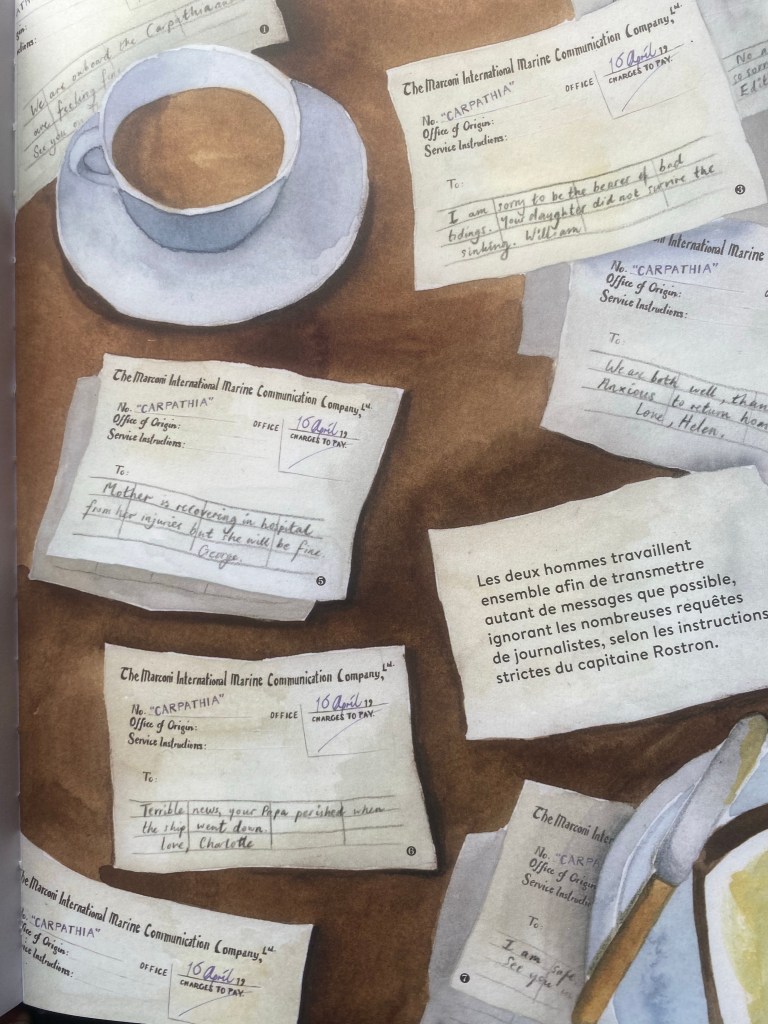 We are onboard the Carpathia and
are feeling
See you
❶
The Marconi International Marine Communication Company, Ltd.
No. "CARPATHIA"
Office of Origin:
Service Instructions:
OFFICE
16 April 19
CHARGES TO PAY.
To:
I am sorry to be the bearer of bad
tidings. Your daughter did not survive the
sinking. William
❸
No
so sorry
Edit
International Marine
No. "CARPATHIA"
Office of Origin:
Service Instructions:
To:
We are both well, than
Anxious to return hom
Love, Helen,
The Marconi International Marine Communication Company, Ltd.
No. "CARPATHIA"
Office of Origin:
Service Instructions:
OFFICE
16 April 19
CHARGES TO PAY.
To:
Mother is recovering in hospital
from her injuries but she will be fine.
George.
❺
Les deux hommes travaillent
ensemble afin de transmettre
autant de messages que possible,
ignorant les nombreuses requêtes
de journalistes, selon les instructions
strictes du capitaine Rostron.
The Marconi International Marine Communication Company, Ltd.
No. "CARPATHIA"
Office of Origin:
Service Instructions:
OFFICE
16 April 19
CHARGES TO PAY.
To:
Terrible news, your Papa perished when
the ship went down.
love, Charlotte
❻
The Marconi Inter
No. "CARP
Office of Origin:
Service Instructi
To:
I am safe.
See you
❼
The Marconi International Marine Communication Company, Ltd.
"CARPATHIA"
of Origin:
Instructions:
OFFICE
16 April 19
CHARGES TO PAY.